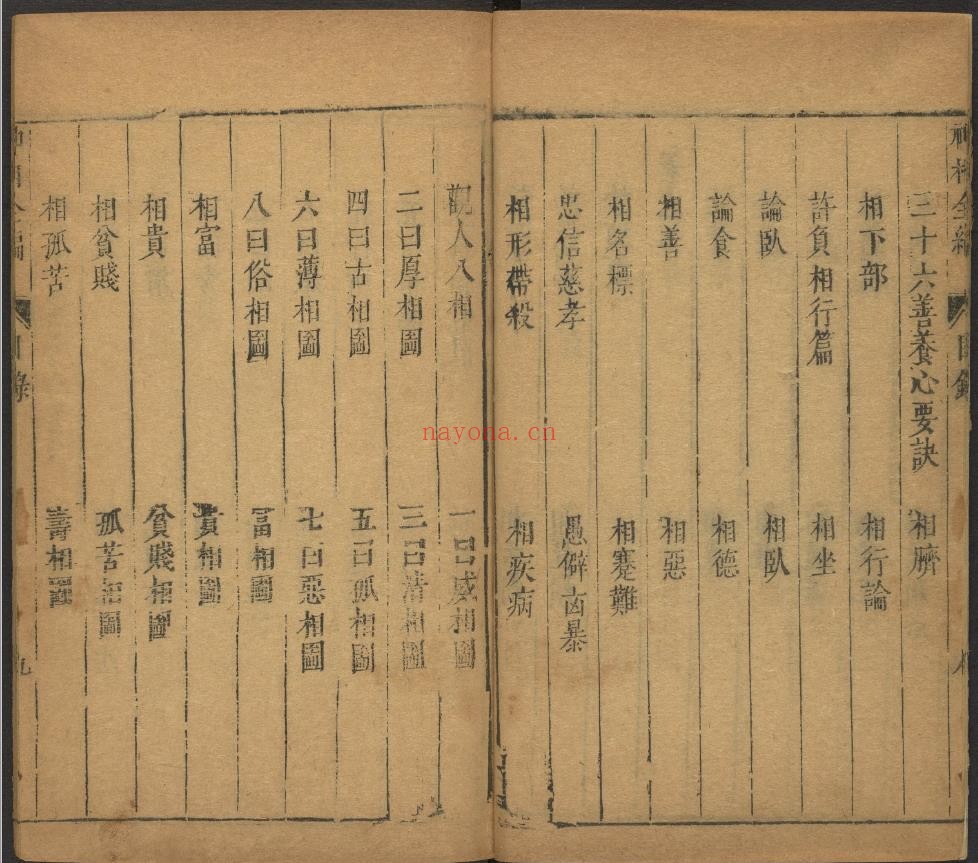 三十六善養心要訣　相臍
相下部　相行論
許負相行篇　相坐
論臥　相臥
論食　相德
相善　相惡
相名標　相蹇難
忠信慈孝　愚僻凶暴
相形帶殺　相疾病
觀人八相　一曰威相圖
二曰厚相圖　三曰清相圖
四曰古相圖　五曰孤相圖
六曰薄相圖　七曰惡相圖
八曰俗相圖　富相圖
相富　貴相圖
相貴　貧賤相圖
相貧賤　孤苦相圖
相孤苦　壽相圖
目錄
九
nayona.cn